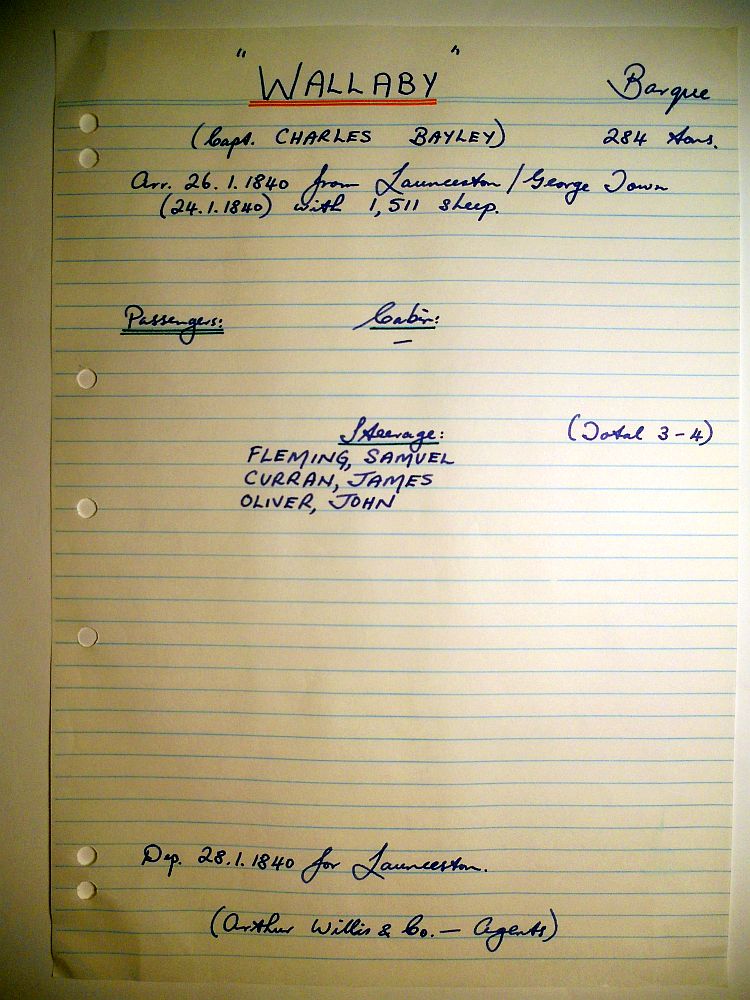 "WALLABY" Barque
(Capt. CHARLES BAYLEY) 284 tons.
Arr. 26.1.1840 from Launceston/George Town
(24.1.1840) with 1,511 sheep.
Passengers: Cabin:
—
Steerage: (Total 3-4)
FLEMING, SAMUEL
CURRAN, JAMES
OLIVER, JOHN
Dep. 28.1.1840 for Launceston.
(Arthur Willis & Co. — Agents)